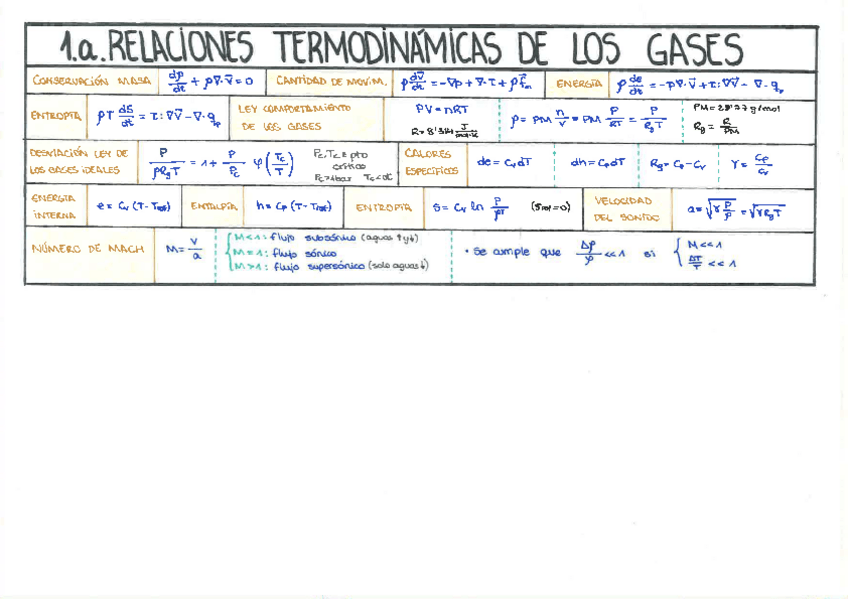 1.a. RELACIONES TERMODINÁMICAS DE LOS GASES
CONSERVACIÓN MASA dρ/dt + ρ∇·v⃗ = 0 CANTIDAD DE MOVIM. ρ dv⃗/dt = -∇p + ∇·τ + ρf⃗m ENERGÍA ρ de/dt = -p∇·v⃗ + τ:∇v⃗ - ∇·q
ENTROPÍA ρT dS/dt = τ:∇v⃗ - ∇·q LEY COMPORTAMIENTO DE LOS GASES PV = nRT R = 8'314 J/mol·K ρ = PM n/V = PM P/RT = P/RgT PM = 28'97 g/mol Rg = R/PM
DESVIACIÓN LEY DE LOS GASES IDEALES P/ρRgT = 1 + P/Pc φ(Tc/T) Pc, Tc ≡ pto crítico Pc > 1bar Tc < 0C CALORES ESPECÍFICOS de = CvdT dh = CpdT Rg = Cp - Cv γ = Cp/Cv
ENERGÍA INTERNA e = Cv (T - Tref) ENTALPÍA h = Cp (T - Tref) ENTROPÍA s = Cv ln P/ργ (Sref = 0) VELOCIDAD DEL SONIDO a = √γ P/ρ = √γRgT
NÚMERO DE MACH M = v/a
M < 1: flujo subsónico (aguas ↑ y ↓)
M = 1: flujo sónico
M > 1: flujo supersónico (solo aguas ↓)
• Se cumple que Δρ/ρ << 1 si
M << 1
ΔT/T << 1